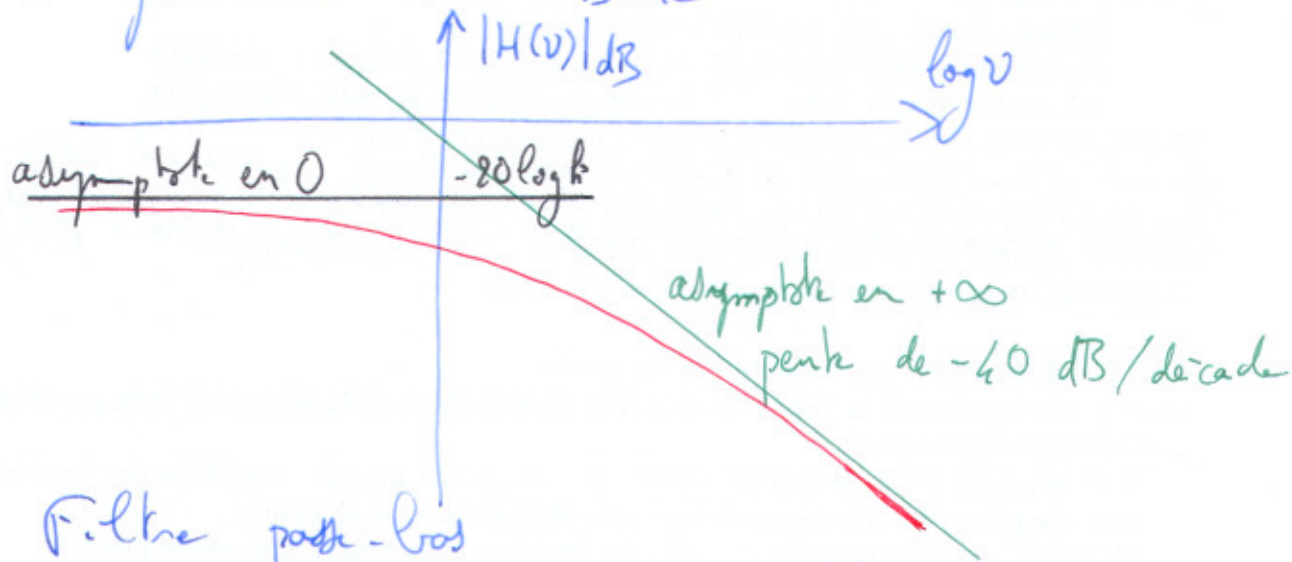 |H(ν)|dB
log ν
asymptote en 0
-20 log k
asymptote en +∞
pente de -40 dB/décade
Filtre passe-bas